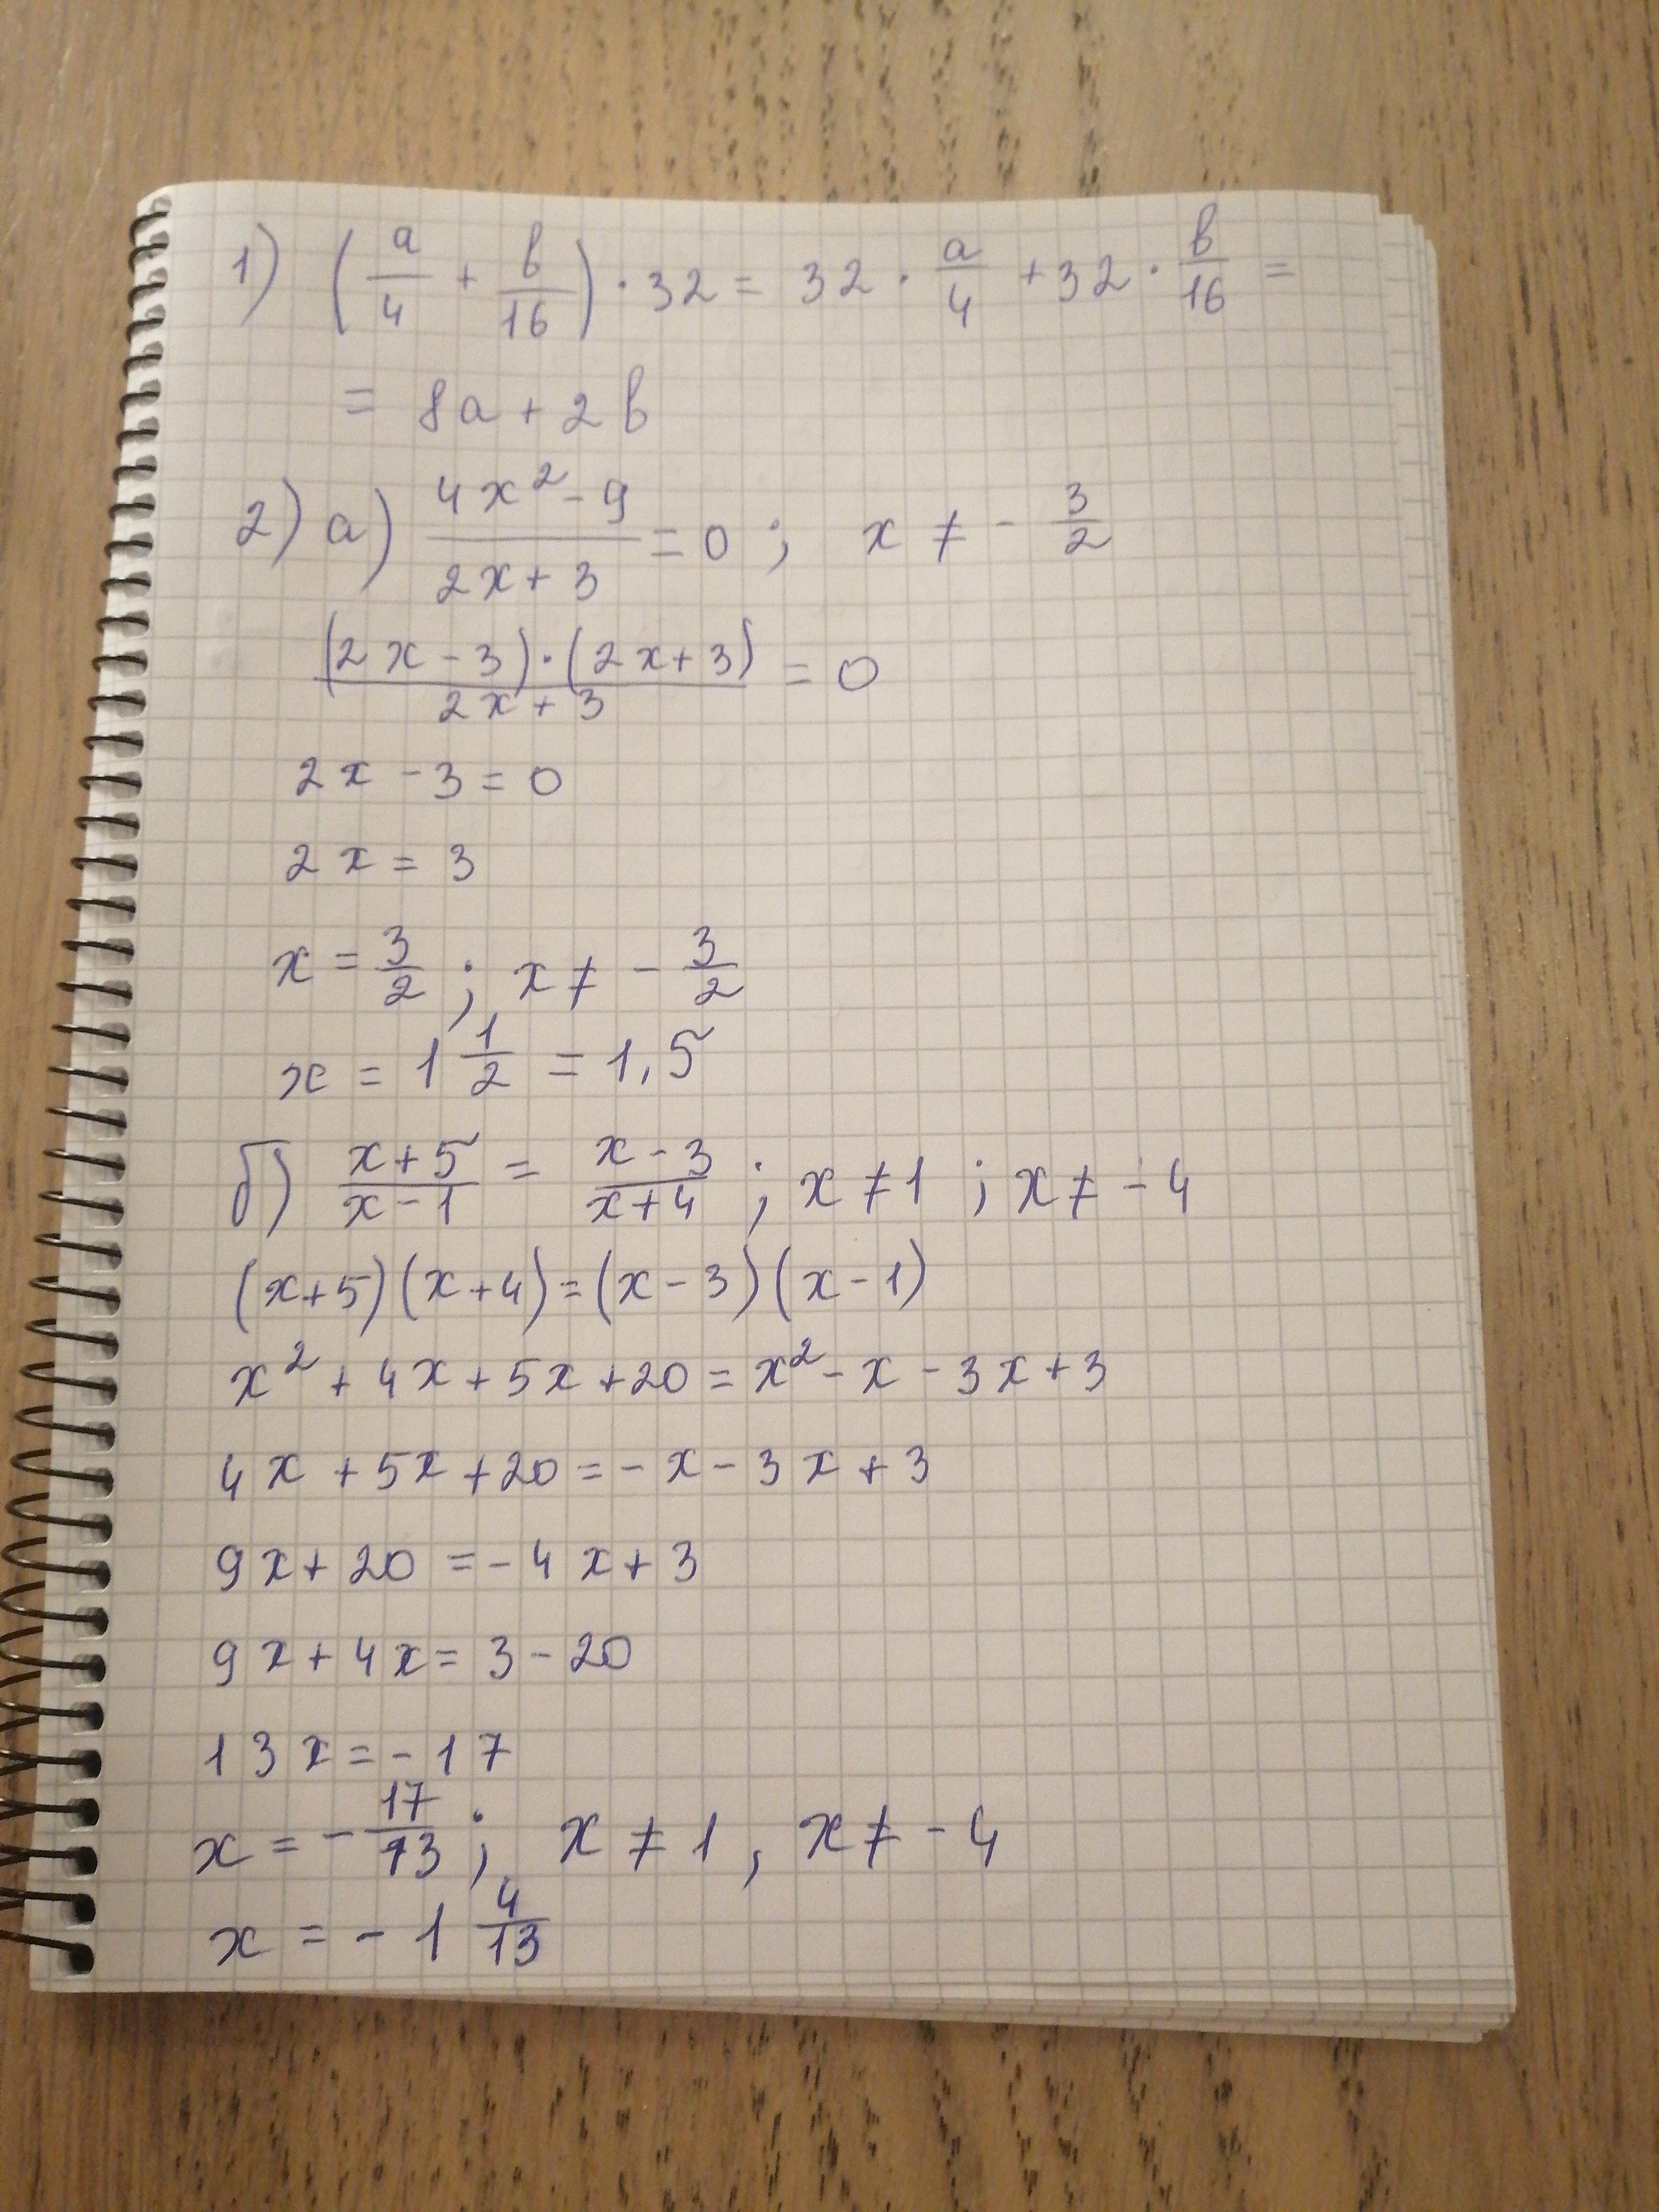 1) (a/4 + b/16) · 32 = 32 · a/4 + 32 · b/16 =
= 8a + 2b
2) а) (4x² - 9)/(2x + 3) = 0 ; x ≠ - 3/2
((2x - 3) · (2x + 3))/(2x + 3) = 0
2x - 3 = 0
2x = 3
x = 3/2 ; x ≠ - 3/2
x = 1 1/2 = 1,5
б) (x + 5)/(x - 1) = (x - 3)/(x + 4) ; x ≠ 1 ; x ≠ - 4
(x + 5)(x + 4) = (x - 3)(x - 1)
x² + 4x + 5x + 20 = x² - x - 3x + 3
4x + 5x + 20 = - x - 3x + 3
9x + 20 = - 4x + 3
9x + 4x = 3 - 20
13x = - 17
x = - 17/13 ; x ≠ 1 , x ≠ - 4
x = - 1 4/13